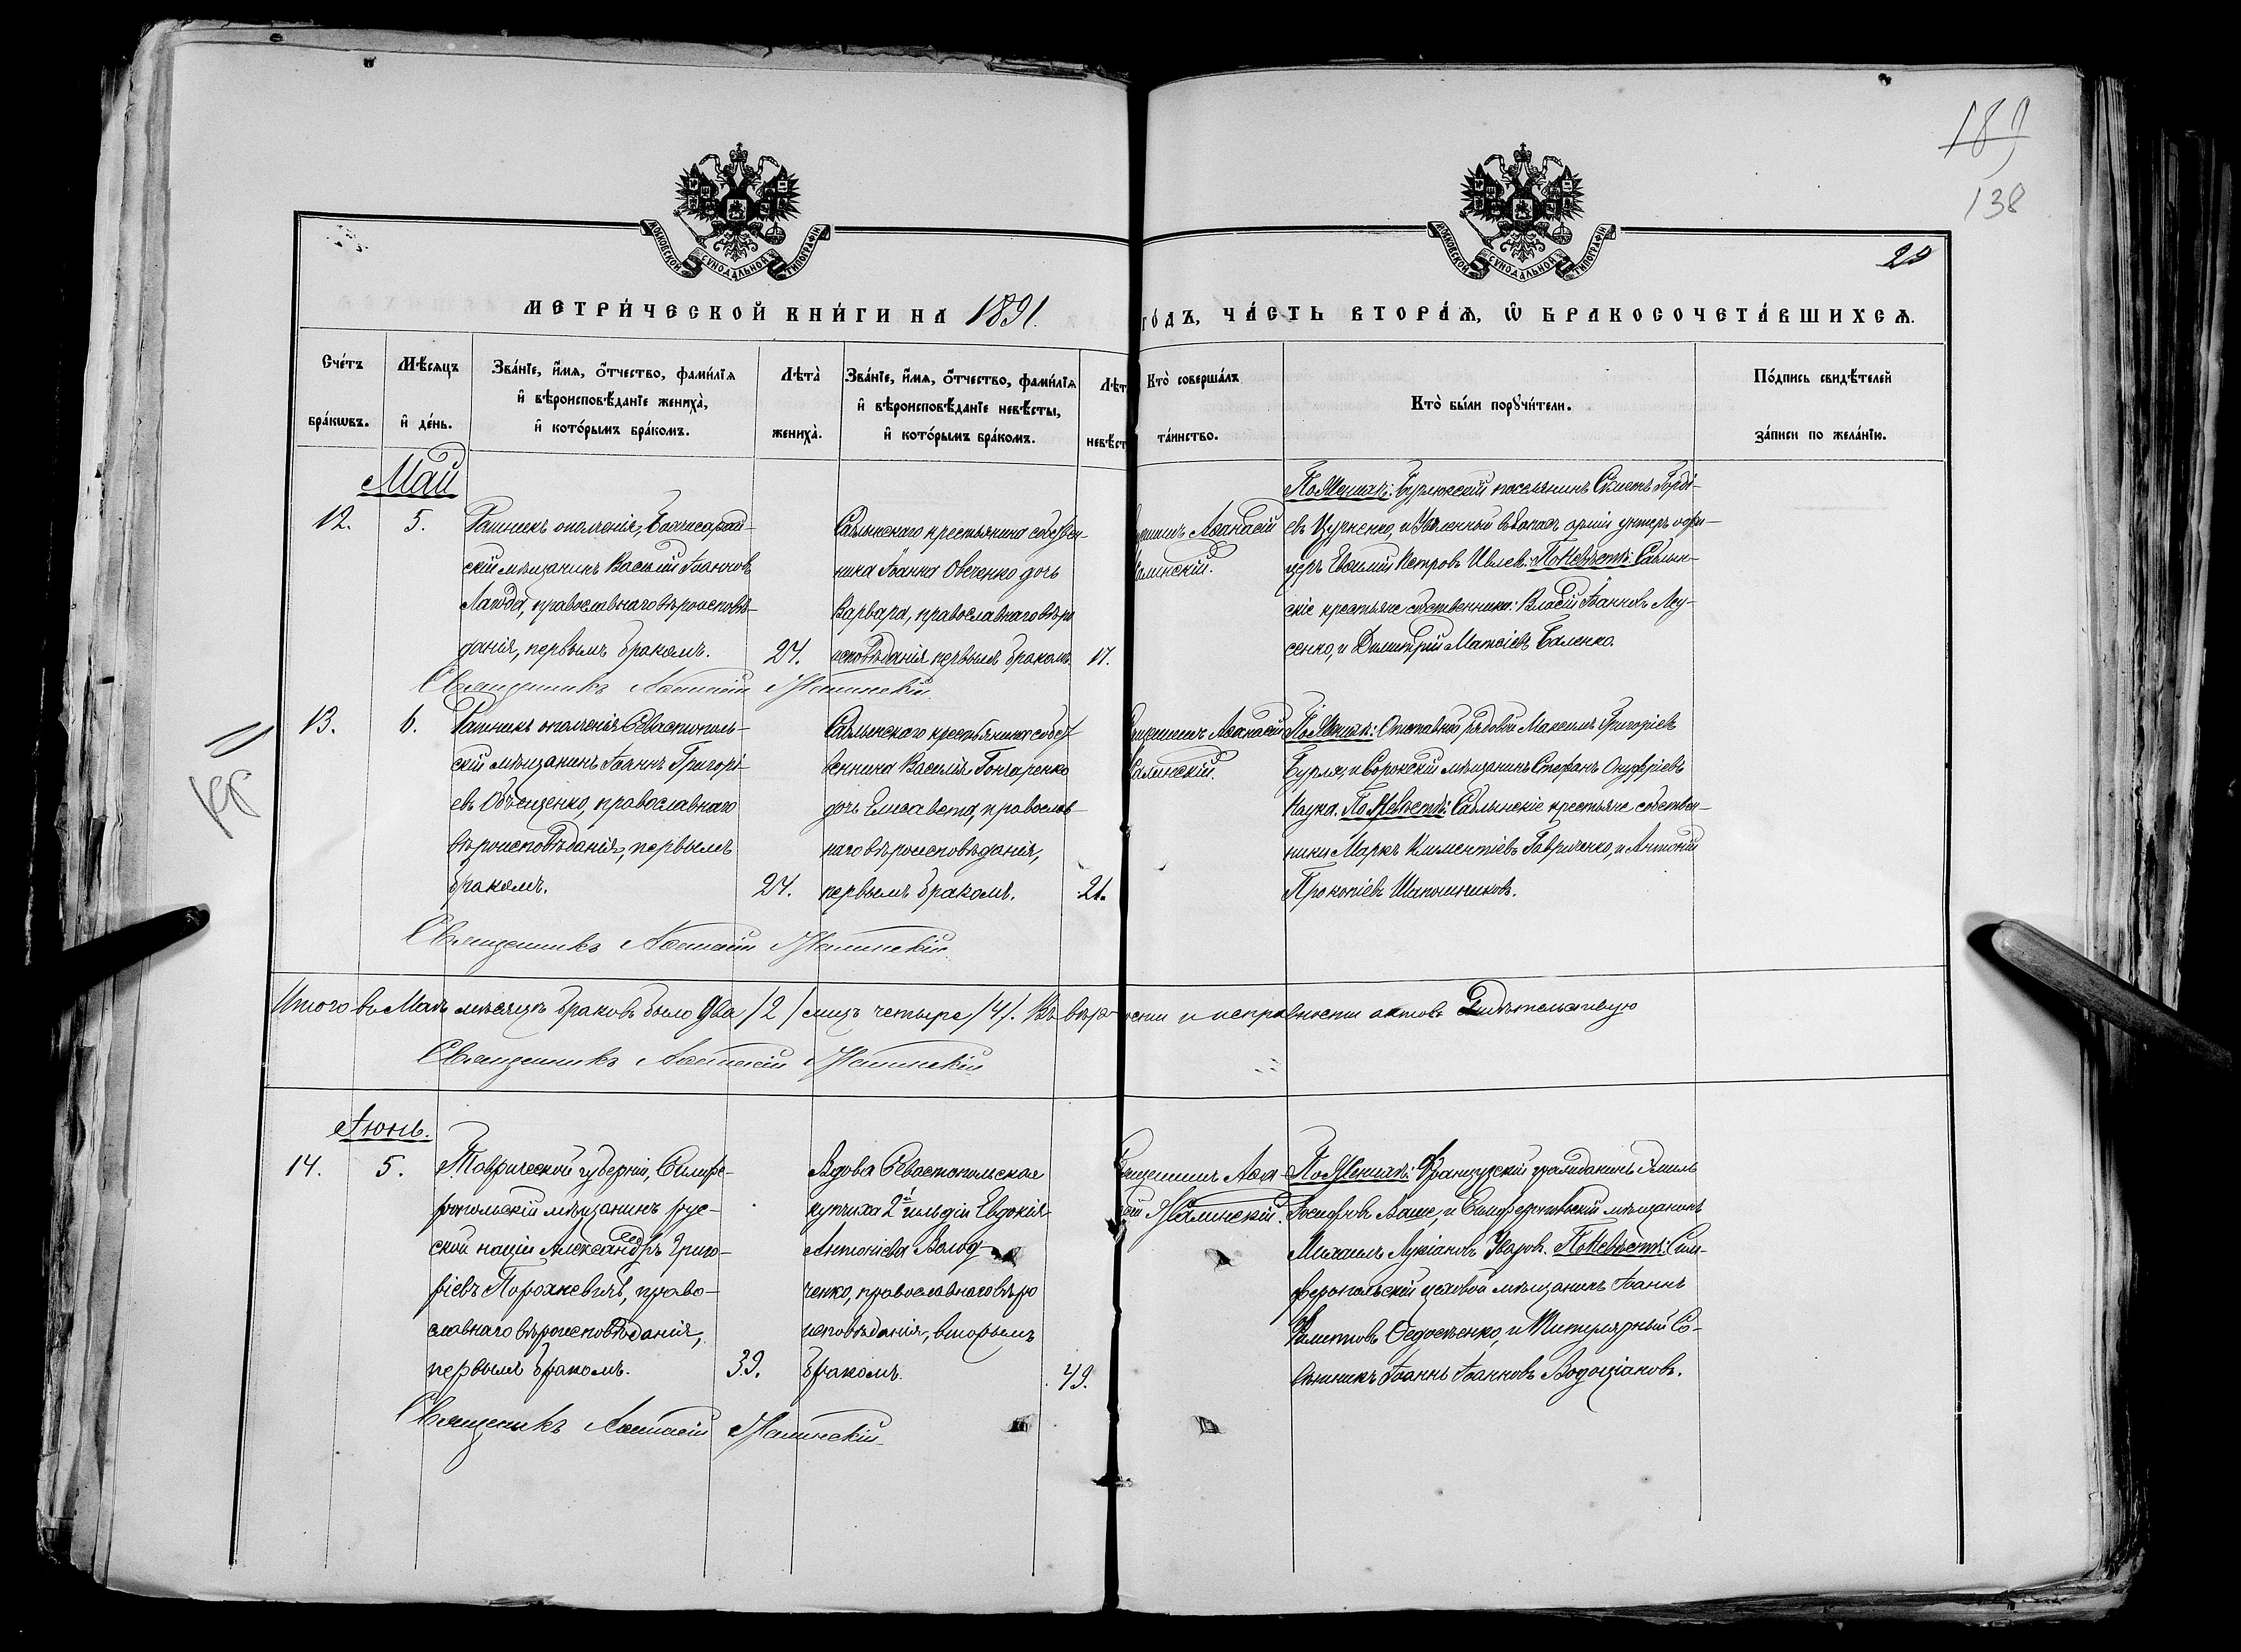 189
138
20
МОСКОВСКОЙ СУНОДАЛЬНОЙ ТИПОГРАФІИ
МОСКОВСКОЙ СУНОДАЛЬНОЙ ТИПОГРАФІИ
МЕТРИ́ЧЕСКОЙ КНИ́ГИ НА 1891.
ГО́ДЪ, ЧА́СТЬ ВТОРА́Ѧ, Ѽ БРАКОСОЧЕТА́ВШИХСѦ.
Сче́тъ
бра́кѡвъ.
Мѣ́сѧцъ
и҆ де́нь.
Зва́нїе, и҆́мѧ, о҆́тчество, фами́лїѧ
и҆ вѣроисповѣ́данїе жениха̀,
и҆ кото́рымъ бра́комъ.
Лѣ́та̀
жениха̀.
Зва́нїе, и҆́мѧ, о҆́тчество, фами́лїѧ
и҆ вѣроисповѣ́данїе невѣ́сты,
и҆ кото́рымъ бра́комъ.
Лѣт
невѣст
Кто̀ соверша́лъ
та́инство.
Кто̀ бы́ли порꙋчи́тели.
По́дпись свидѣ́телей
за́писи по жела́нїю.
Май
12.
5.
Ратникъ ополченія, Бахчисарай-
скій мѣщанинъ Василій Іоанновъ
Лагода, православнаго вѣроисповѣ-
данія, первымъ бракомъ.
24.
Саблынскаго крестьянина собствен-
ника Іоанна Овченко дочь
Варвара, православнаго вѣро
исповѣданія первымъ бракомъ.
17.
Аѳанасій
алинскій.
По Женихѣ: поселянинъ Гордѣ-
евъ и Уволенный въ запасъ арміи унтеръ офи-
церъ Евѳимій Петровъ Ивлевъ. По Невѣстѣ: Саблын-
скіе крестьяне собственники: Власій Іоанновъ Лу-
сенко, и Димитрій Матѳіевъ Баленко.
Священникъ Аѳанасій Калинскій.
13.
6.
Ратникъ ополченія Севастополь-
скій мѣщанинъ Іоаннъ Григорі-
евъ Объещенко, православнаго
вѣроисповѣданія, первымъ
бракомъ.
24.
Саблынскаго крестьянина собст
венника Василія Гончаренко
дочь Елисавета, православ-
наго вѣроисповѣданія,
первымъ бракомъ.
21.
Священникъ Аѳанасій
Калинскій.
По Женихѣ: Отставной рядовой Максимъ Григоріевъ
Бурля, и Сорокскій мѣщанинъ Стефанъ Онуфріевъ
Наука. По Невѣстѣ: Саблынскіе крестьяне собствен-
ники Маркъ Климентіевъ Гавриченко, и Антоній
Прокопіевъ Шапошниковъ.
Священникъ Аѳанасій Калинскій.
Итого въ Маѣ мѣсяцѣ браковъ было два /2/ лицъ четыре /4/. Въ вѣрности и исправности актовъ Свидѣтельствую
Священникъ Аѳанасій Калинскій
Іюнь.
14.
5.
Таврической губерніи, Симфе-
ропольскій мѣщанинъ рус-
ской націи Александръ Григо-
ріевъ Порохневичъ, право-
славнаго вѣроисповѣданія,
первымъ бракомъ.
39.
Вдова Севастопольская
купчиха 2й гильдіи Евдокія
Антоніева Волод-
ченко, православнаго вѣро
исповѣданія, вторымъ
бракомъ.
49.
Священникъ Аѳан-
сій Калинскій.
По Женихѣ: Французскій гражданинъ Эмиль
Іосифовъ Ваше, и Симферопольскій мѣщанинъ
Михаилъ Лукіановъ Уваровъ. По Невѣстѣ: Сим-
феропольскій цеховой мѣщанинъ Іоаннъ
Ѳедосѣенко, и Титулярный Со-
вѣтникъ Іоаннъ Іоанновъ Водоціановъ.
Священникъ Аѳанасій Калинскій.